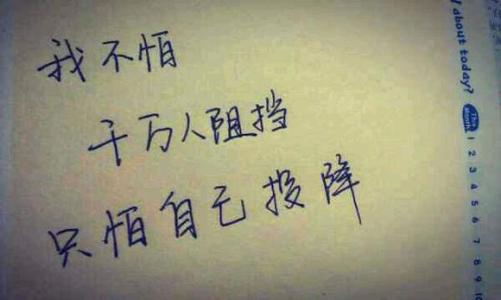 我不怕
千万人阻挡
只怕自己投降
about today?
The month
1 2 3 4 5 6 7 8 9